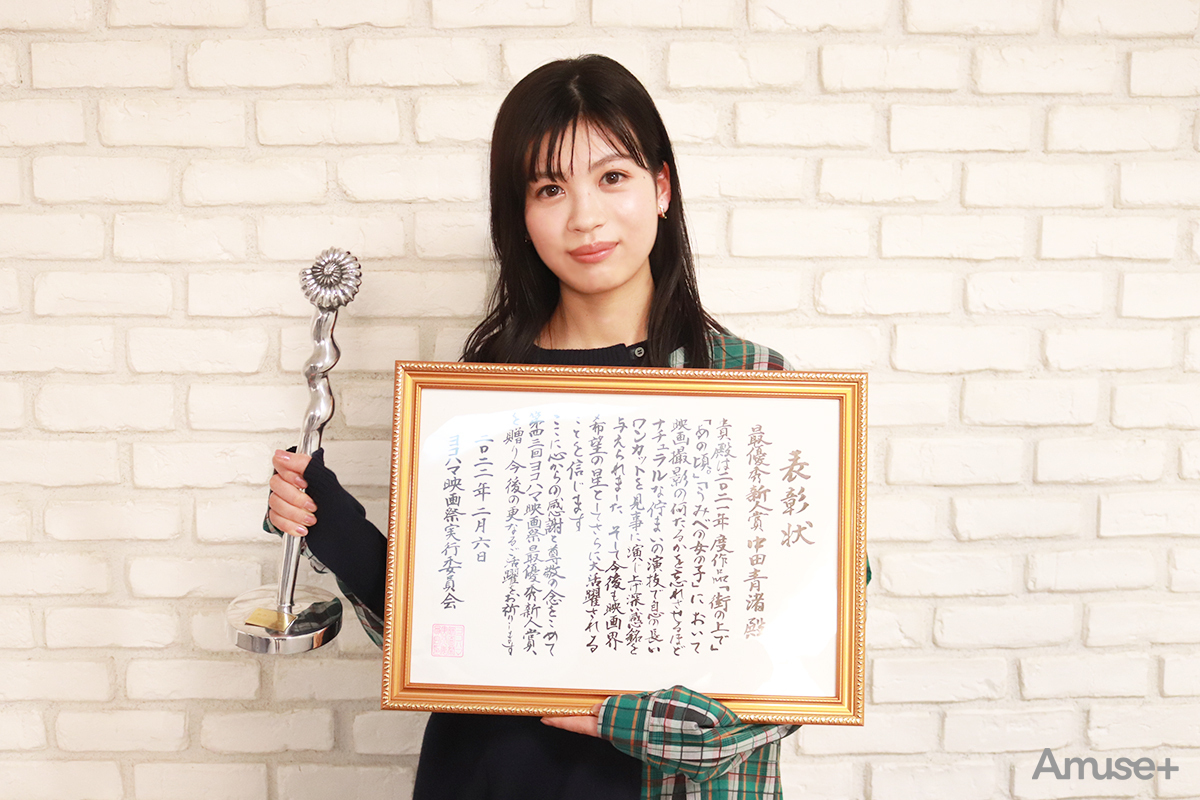 表彰状
最優秀新人賞 中田青渚 殿
貴殿は二〇二一年度作品「街の上で」
「あの頃。」「うみべの女の子」において
映画撮影の何たるかを忘れさせるほど
ナチュラルな佇まいの演技で息の長い
ワンカットを見事に演じ上げ深い感銘を
与えられました そして今後も映画界
希望の星としてさらに大活躍される
ことを信じます
ここに心からの感謝と尊敬の念をこめて
第四三回ヨコハマ映画祭最優秀新人賞
を贈り今後の更なるご活躍をお祈りします
二〇二二年 二月六日
ヨコハマ映画祭実行委員会
Amuse+